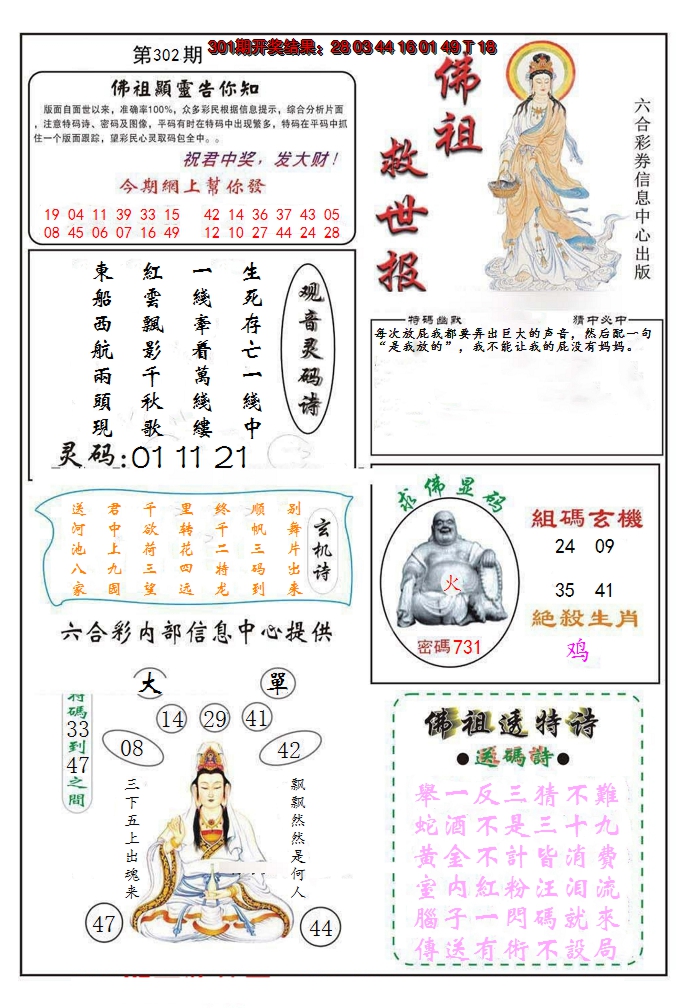 第302期
301期开奖结果：28 03 44 16 01 49 T 18
佛祖顯靈告你知
版面自面世以来，准确率100%，众多彩民根据信息提示，综合分析片面
，注意特码诗、密码及图像，平码有时在特码中出现繁多，特码在平码中抓
住一个版面跟踪，望彩民心灵取码包全中。。
祝君中奖，发大财！
今期網上幫你發
19 04 11 39 33 15 42 14 36 37 43 05
08 45 06 07 16 49 12 10 27 44 24 28
佛祖
救世报
六合彩券信息中心出版
观音灵码诗
生死存亡一綫中
一綫牽着萬綫縷
紅雲飄影千秋歌
東船西航兩頭現
灵码:01 11 21
特碼幽默
猜中必中
每次放屁我都要弄出巨大的声音，然后配一句
“是我放的”，我不能让我的屁没有妈妈。
玄机诗
送君千里终顺别
河中欲转千帆舞
池上荷花二三片
八九三四特码出
家园望远龙到来
六合彩内部信息中心提供
求佛显码
火
密碼731
組碼玄機
24 09
35 41
絶殺生肖
鸡
大
單
特碼33到47之間
14 29 41
08
42
三下五上出魂来
飘飘然然是何人
47
44
佛祖透特诗
●送碼詩●
舉一反三猜不難
蛇酒不是三十九
黃金不計皆消費
室内紅粉汪泪流
腦子一閃碼就來
傳送有術不設局